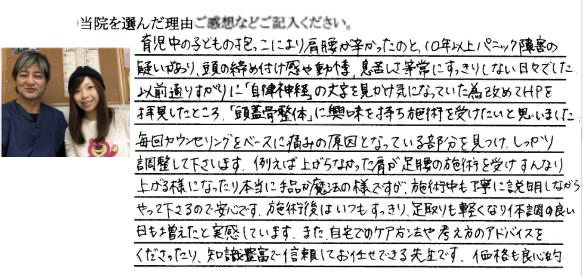 当院を選んだ理由ご感想などご記入ください。
育児中の子どもの抱っこにより肩腰が辛かったのと、10年以上パニック障害の
疑いがあり、頭の締め付け感や動悸、息苦しさ等常にすっきりしない日々でした
以前通りすがりに「自律神経」の文字を見かけ気になっていた為改めてHPを
拝見したところ、「頭蓋骨整体」に興味を持ち施術を受けたいと思いました
毎回カウンセリングをベースに痛みの原因となっている部分を見つけ、しっかり
調整して下さいます。例えば上がらなかった肩が足腰の施術を受けすんなり
上がる様になったり本当に手品か魔法の様ですが、施術中も丁寧に説明しながら
やって下さるので安心です。施術後はいつもすっきり、足取りも軽くなり体調の良い
日も増えたと実感しています。また、自宅でのケア方法や考え方のアドバイスを
くださったり、知識豊富で信頼してお任せできる先生です。価格も良心的